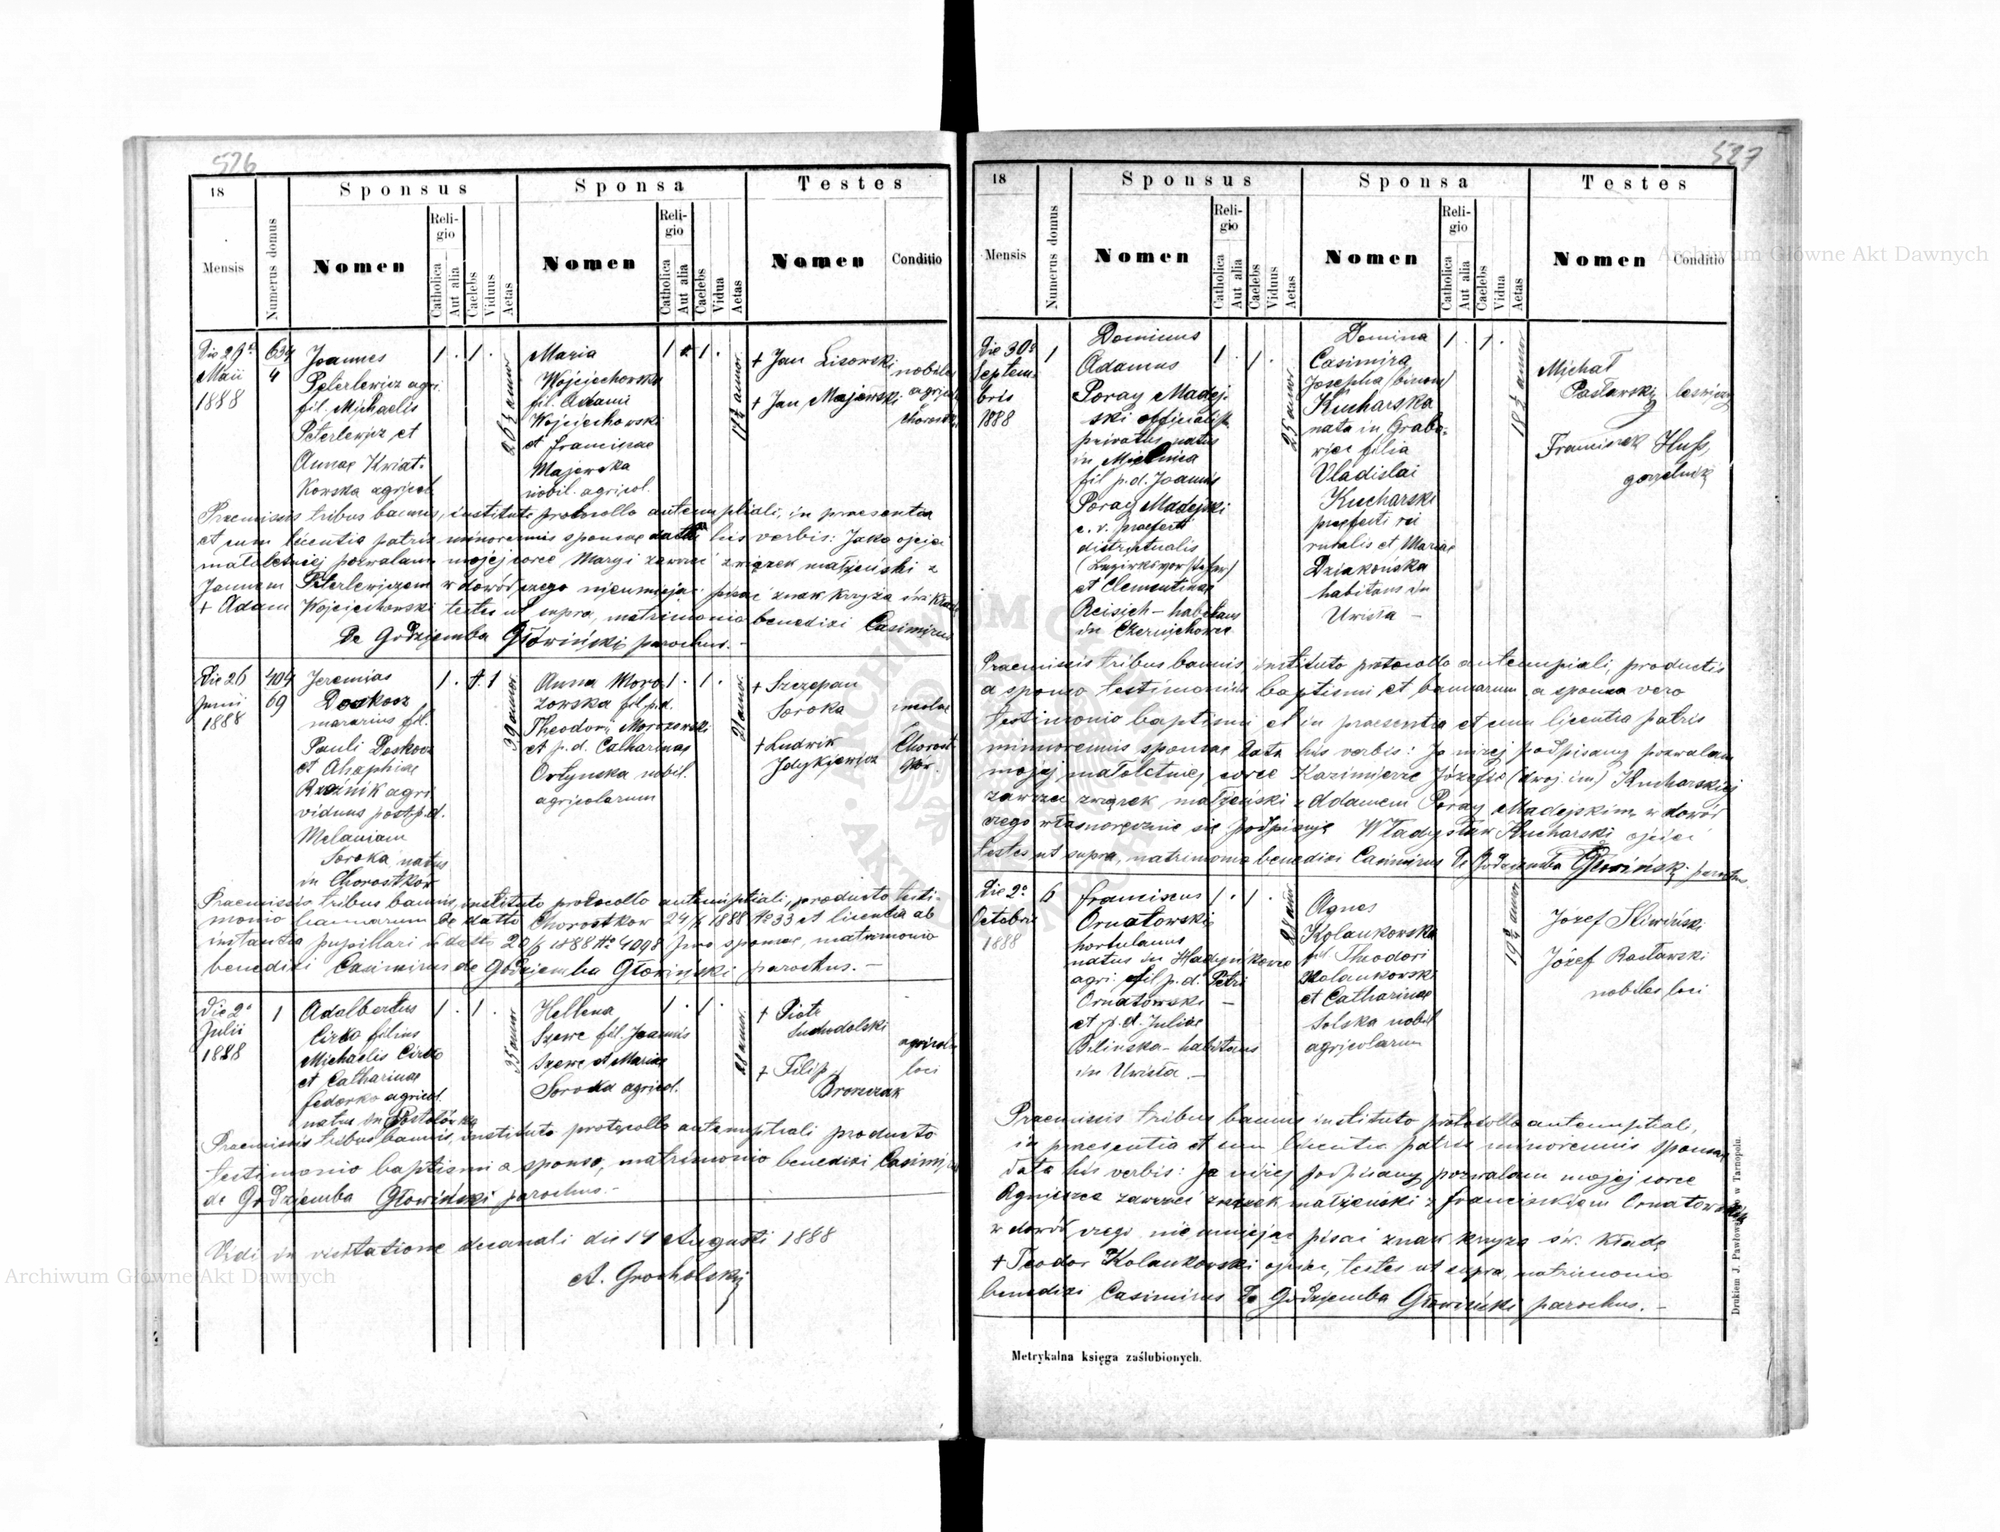 526
18
Sponsus
Sponsa
Testes
Mensis
Numerus domus
Nomen
Religio
Catholica
Aut alia
Caelebs
Viduus
Aetas
Nomen
Religio
Catholica
Aut alia
Caelebs
Vidua
Aetas
Nomen
Conditio
Die 29ª
Maii
1888
634
4
Joannes
Peterlewicz agri.
fil. Michaelis
Peterlewicz et
Annae Kwiat-
kowska agricol.
1 . 1 .
26½ annor.
Maria
Wojciechowska
fil. Adami
Wojciechowski
et Franciscae
Majewska
nobil. agricol.
1 1 .
17½ annor.
+ Jan Lisowski
+ Jan Majewski
nobiles
agricolae
Praemissis tribus bannis, instituto protocollo antenuptiali, in praesentia
et cum licentia patris minorennis sponsae data his verbis: Jako ojciec
małoletniej pozwalam mojej córce Maryi zawrzeć związek małżeński z
Janem Peterlewiczem w dowód czego nieumiejąc pisać znak krzyża św. kładę
+ Adam Wojciechowski testes ut supra, matrimonio benedixi Casimirus
De Godziemba Głowiński parochus. —
Die 26
Junii
1888
404
69
Jeremias
Doskocz
fil.
Pauli Doskocz
et Ahaphiae
Rzeźnik agri
viduus post p.d.
Melaniam
Soroka natus
in Chorostków
1 . 1
39 annor.
Anna Moro-
zowska fil. p.d.
Theodori Morozowski
et p. d. Catharinae
Ortynska nobil.
agricolarum
1 . 1 .
21 annor.
+ Szczepan
Soroka
+ Ludwik
Idykiewicz
Chorost
kow.
Praemissis tribus bannis, instituto protocollo antenuptiali, producto testi-
monio bannorum de datto Chorostkow 24/6 1888 No 33 et licentia ab
instantia pupillari de datto 20/6 1888 No 4098 pro sponsae, matrimonio
benedixi Casimirus de Godziemba Głowiński parochus. —
Die 2ª
Julii
1888
1
Adalbertus
Cirko filius
Michaelis Cirko
et Catharinae
Fedorko agricol.
natus in Postolówka
1 . 1 .
35 annor.
Hellena
Szewc fil. Joannis
Szewc et Mariae
Soroka agricol.
1 . 1 .
21 annor.
+ Piotr
Suchodolski
+ Filip
Bronczak
agricolae
loci
Praemissis tribus bannis, instituto protocollo antenuptiali producto
testimonio baptismi a sponso, matrimonio benedixi Casimirus
de Godziemba Głowiński parochus. —
Vidi in visitatione decanali die 14 Augusti 1888
A. Grocholski
527
18
Sponsus
Sponsa
Testes
Mensis
Numerus domus
Nomen
Religio
Catholica
Aut alia
Caelebs
Viduus
Aetas
Nomen
Religio
Catholica
Aut alia
Caelebs
Vidua
Aetas
Nomen
Conditio
Die 30ª
Septem-
bris
1888
1
Dominus
Adamus
Poray Madej-
ski officialista
privatus natus
in Mielnica
fil p. d. Joannis
Poray Madejski
c. r. praefecti
districtualis
et Clementinae
Reisich — habitans
in Czernichowce
1 . 1 .
25 annor.
Domina
Casimira
Josepha (binom)
Kucharska
nata in Grabo-
wice filia
Vladislai
Kucharski
praefecti rei
ruralis et Mariae
Dziakonska
habitans in
Uwisła —
1 . 1 .
18½ annor.
Michał
Pasławski leśniczy
Franciszek Huss,
gorzelnik
Praemissis tribus bannis instituto protocollo antenuptiali, productis
a sponso testimoniis baptismi et bannorum a sponsa vero
testimonio baptismi et in praesentia et cum licentia patris
minorennis sponsae data his verbis: Ja niżej podpisany pozwalam
mojej małoletniej córce Kazimierze Józefie (dwoj. im) Kucharskiej
zawrzeć związek małżeński z Adamem Poray Madejskim, w dowód
czego własnoręcznie się podpisuję Władysław Kucharski ojciec
testes ut supra, matrimonio benedixi Casimirus de Godziemba Głowiński parochus
Die 2ª
Octobris
1888
6
Franciscus
Ornatowski
hortulanus
natus in Hadynkowce
agri. fil p. d. Petri
Ornatowski —
et p. d. Juliae
Bilinska — habitans
in Uwisła —
1 . 1 .
28 annor.
Agnes
Kolankowska
fil Theodori
Kolankowski
et Catharinae
Solska nobil
agricolarum
19½ annor.
Józef Sliwiński
Józef Racławski
nobiles loci
Praemissis tribus bannis instituto protocollo antenuptiali,
in praesentia et cum licentia patris minorennis sponsae
data his verbis: Ja niżej podpisany pozwalam mojej córce
Agnieszce zawrzeć związek małżeński z Franciszkiem Ornatowskim
w dowód czego nieumiejąc pisać znak krzyża św. kładę
+ Teodor Kolankowski ojciec, testes ut supra, matrimonio
benedixi Casimirus De Godziemba Głowiński parochus. —
Metrykalna księga zaślubionych.
Drukiem J. Pawłowskiego w Tarnopolu.
Archiwum Główne Akt Dawnych
Archiwum Główne Akt Dawnych